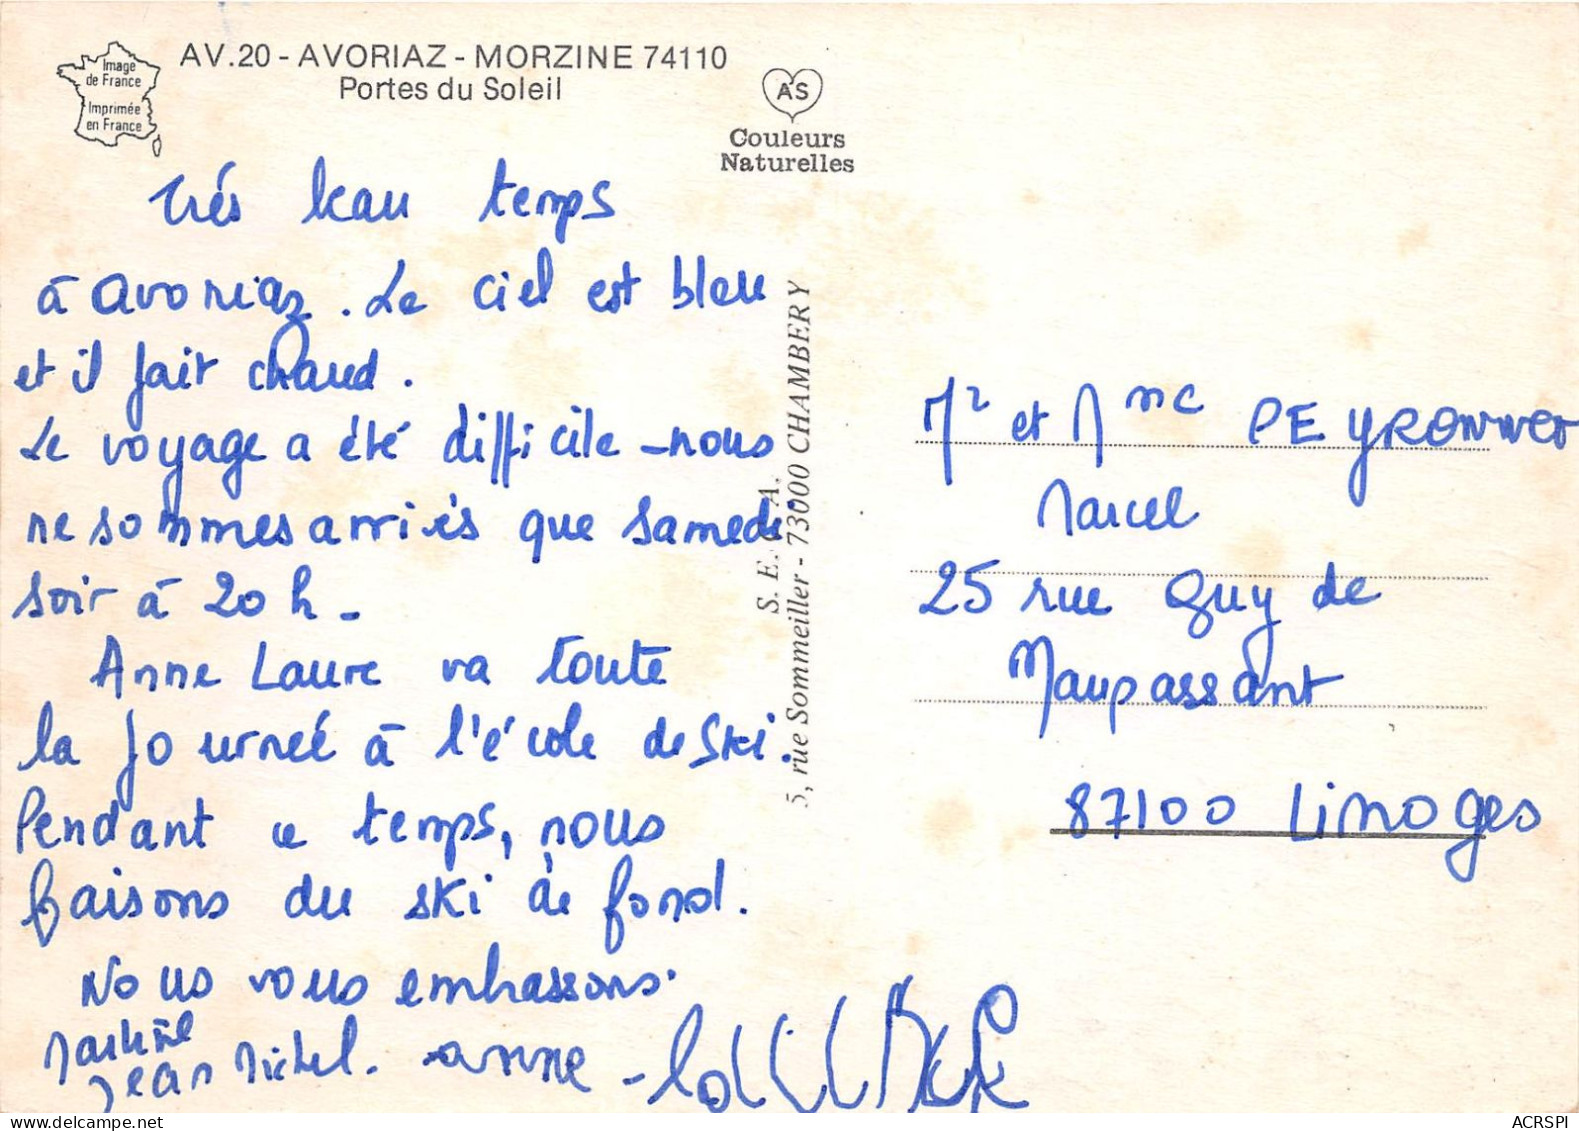 Image
de France
Imprimée
en France
AV.20 - AVORIAZ - MORZINE 74110
Portes du Soleil
AS
Couleurs
Naturelles
Très beau temps
à Avoriaz. Le ciel est bleu
et il fait chaud.
Le voyage a été difficile - nous
ne sommes arrivés que samedi
soir à 20 h -
Anne Laure va toute
la journée à l'école de Ski.
Pendant ce temps, nous
faisons du ski de fond.
Nous vous embrassons.
Jean Michel. anne -
S.E.C.A.
5, rue Sommeiller - 73000 CHAMBERY
Mr et Mme PEYRONNET
Marcel
25 rue Guy de
Maupassant
87100 Limoges
ACRSPI